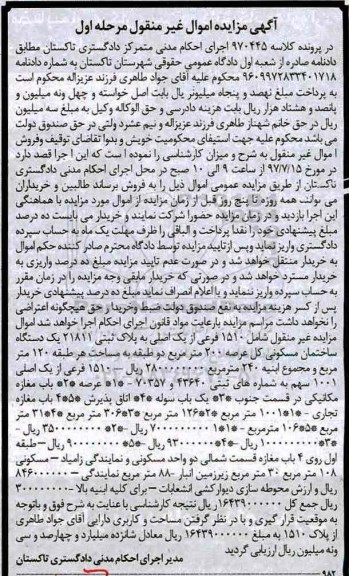 آگهی مزایده اموال غیر منقول مرحله اول
در پرونده کلاسه ۹۷۰۴۴۵ اجرای احکام مدنی متمرکز دادگستری تاکستان مطابق
دادنامه صادره از شعبه اول دادگاه عمومی حقوقی شهرستان تاکستان به شماره دادنامه
۹۶۰۹۹۷۲۸۳۳۴۰۱۷۱۸ محکوم علیه آقای جواد طاهری فرزند عزیزاله محکوم است
به پرداخت مبلغ نهصد و پنجاه میلیونر یال بابت اصل خواسته و چهل ونه میلیون و
پانصد و هشتاد هزار ریال بابت هزینه دادرسی و حق الوکاله وکیل به مبلغ سه میلیون
ریال در حق خانم شهناز طاهری فرزند عزیزاله و نیم عشرد ولتی در حق صندوق دولت
می باشد محکوم علیه جهت استیفای محکومیت خویش و بدوا تقاضای توقیف وفروش
ا موال غیر منقول به شرح و میزان کارشناسی را نموده ا ست که این ا جرا قصد دارد
در مورخ ۹۷/۷/۱۵ از ساعت ۹ الی ۱۰ صبح در محل اجرای احکام مدنی دادگستری
تاکستان از طریق مزایده عمومی اموال ذیل را به فروش برساند طالبین و خریداران
می توانند همه روزه تا پنج روز قبل از زمان مزایده از اموال مورد مزایده با هماهنگی
این اجرا بازدید و در زمان مزایده حضورا شرکت نمایند و خریدار می بایست ده درصد
مبلغ پیشنهادی خود را نقدا پرداخت و الباقی را ظرف مهلت یک ماه به حساب سپرده
دادگستری واریز نماید وپس ازتایید مزایده توسط دادگاه محترم صادر کننده حکم اموال
به خریدار منتقل خواهد شد و در صورت عدم تایید مزایده مبلغ ده درصد واریزی به
خریدار مسترد خواهد شد و در صورتی که خریدار مابقی وجه مزایده را در زمان مقرر
به حساب سپرده واریز ننماید و یا اعلام انصراف نماید مبلغ ده درصد پیشنهادی خریدار
پس از کسر هزینه مزایده به نفع صندوق دولت ضبط وخریدار حق هیچگونه اعتراضی
را نخواهد داشت مراسم مزایده بارعایت مواد قانون اجرای احکام اجرا خواهد شد اموال
مزایده غیر منقول شامل ۱۵۱۰ فرعی از یک اصلی به پلاک ثبتی ۲۱۸۱۱ یک دستگاه
ساختمان مسکونی کل عرصه ۲۰۰ متر مربع دو طبقه به مساحت هر طبقه ۱۲۰ متر
مربع و مجموع ابنیه ۲۴۰ مترمربع ۲۸۰۰۰۰۰۰۰۰ ریال - ۱۵۱۰ فرعی از یک اصلی
۱۰۰۱ سهم به شماره های ثبتی ۴۳۶۴۰ و ۷۰۳۵۷ - *۱ عرصه *۲ باب مغازه
مکانیکی در قسمت جنوب *۳ یک باب سوله *۴ اتاق پذیرش *۵ ۴ باب مغازه
تجاری - *۱ ۱۰۰۱ متر مربع *۲ ۱۲۶ متر مربع *۳ ۳۰۶ متر مربع *۴ ۳۱ متر
مربع *۵ ۱۰۶ مترمربع
اول روی ۴ باب مغازه قسمت شمالی دو واحد مسکونی و نمایندگی زامیاد - مسکونی
۱۰۸ متر مربع ۳۰ متر مربع زیرزمین انبار ۸۸- متر مربع نمایندگی - ۳۴۶۰۰۰۰۰۰۰
ریال و ارزش محوطه سازی دیوارکشی انشعابات - برای کلیه ابنیه بالا ۳۰۰۰۰۰۰۰۰۰
ریال جمع کل ۱۶۴۳۹۰۰۰۰۰۰ ریال نتیجه کارشناسی با عنایت به شرح فوق و باتوجه
به موقعیت قرار گیری و با در نظر گرفتن مساحت و کاربری دارایی آقای جواد طاهری
از پلاک ۱۵۱۰ به مبلغ ۱۶۴۳۹۰۰۰۰۰۰ ریال معادل شانزده میلیارد و چهارصد و سی
ونه میلیون ریال ارزیابی گردید
مدیر اجرای احکام مدنی دادگستری تاکستان
۹۸۲